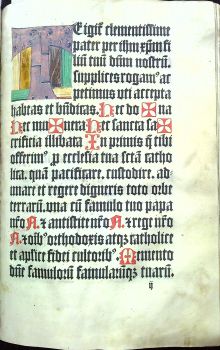 E igit᷑ clementissime
pater per ihm xp̄m fi
liū tuū dn̄m nostrū.
supplices rogam⁹ ac
petimus uti accepta
habeas et bn̄dicas. Hec do ✠ na
Hec mu ✠ nera Hec sancta sa ✠
crificia illibata In primis q̄ tibi
offerim⁹ p̱ ecclesia tua sc̄tā catho
lica. quā pacificare. custodire. ad
unare et regere digneris toto orbe
terrarū. una cū famulo tuo papa
nr̄o N. & antistite nr̄o N. & rege nr̄o
N. & oib⁹ orthodoxis atqꝫ catholice
et ap̄lice fidei cultorib⁹. Memento
dn̄e famulorū famularūqꝫ tuarū.
ij